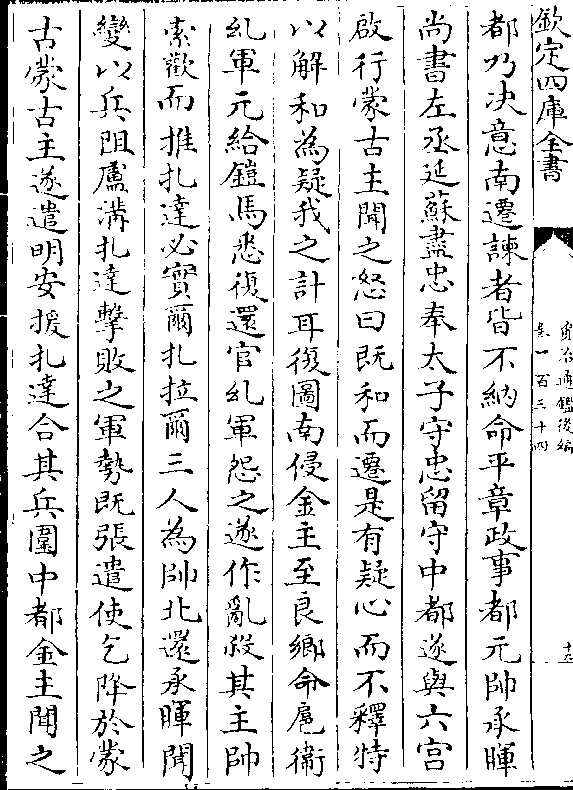 欽定四庫全書
資治通鑑後編
卷一百三十四
都乃决意南遷諫者皆不納命平章政事都元帥承暉
尚書左丞延蘇盡忠奉太子守忠留守中都遂與六宫
啟行蒙古主聞之怒曰既和而遷是有疑心而不釋特
以解和為疑我之計耳復圖南侵金主至良鄉命扈衛
乣軍元給鎧馬悉復還官乣軍怨之遂作亂殺其主帥
索歡而推扎達必實爾扎拉爾三人為帥北還承暉聞
變以兵阻盧溝扎達擊敗之軍勢既張遣使乞降於蒙
古蒙古主遂遣明安援扎達合其兵圍中都金主聞之